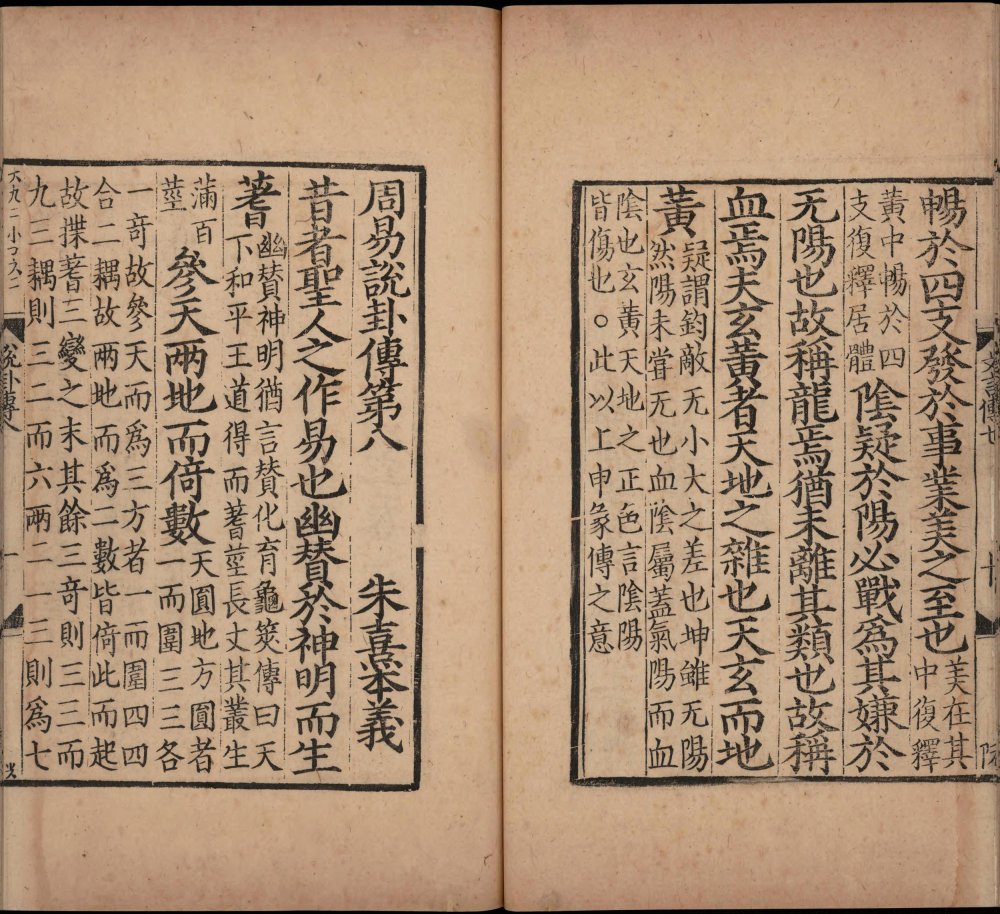 暢於四支發於事業美之至也美在其
中復釋
黃中暢於四
支復釋居體陰疑於陽必戰爲其嫌於
无陽也故稱龍焉猶未離其類也故稱
血焉夫玄黃者天地之雜也天玄而地
黃疑謂鈞敵无小大之差也坤雖无陽
然陽未甞无也血陰屬蓋氣陽而血
陰也玄黃天地之正色言陰陽
皆傷也○此以上申象傳之意
周易說卦傳第八 朱熹本義
昔者聖人之作易也幽贊於神明而生
蓍幽贊神明猶言贊化育龜筴傳曰天
下和平王道得而蓍莖長丈其叢生
滿百
莖參天兩地而倚數天圓地方圓者
一而圍三三各
一奇故參天而爲三方者一而圍四四
合二耦故兩地而爲二數皆倚此而起
故揲蓍三變之末其餘三奇則三三而
九三耦則三二而六兩二一三則爲七
說卦傳八 一